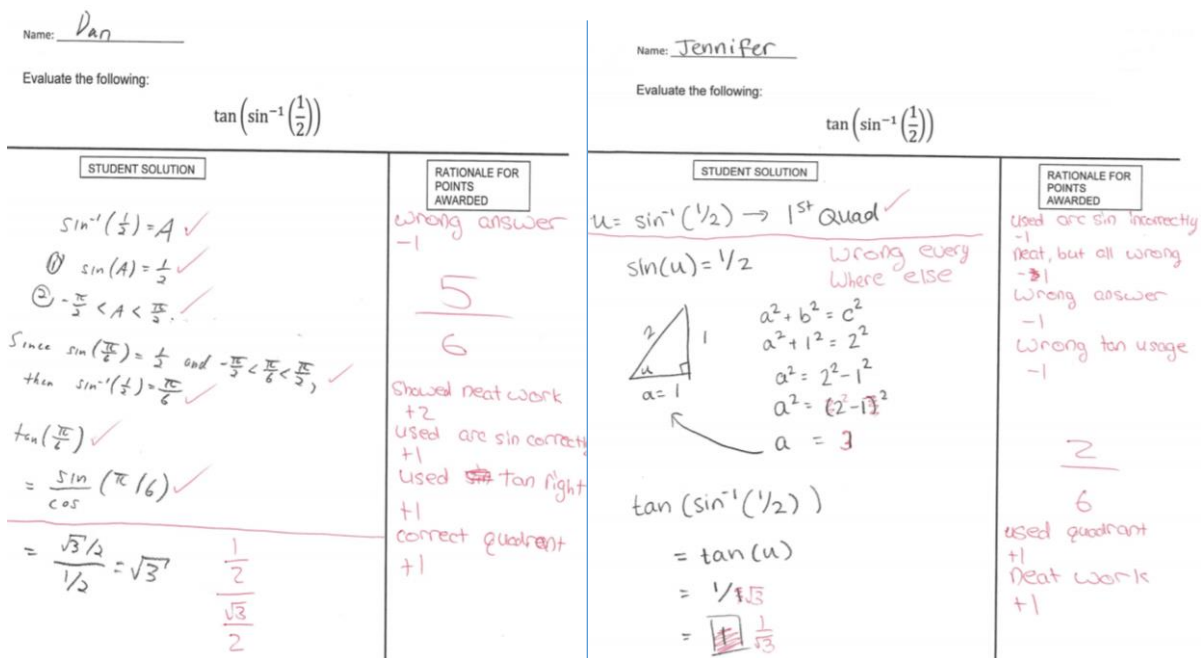 Name: Dan
Evaluate the following:
tan(sin⁻¹(1/2))
STUDENT SOLUTION
sin⁻¹(1/2) = A ✓
① sin(A) = 1/2 ✓
② -π/2 < A < π/2. ✓
Since sin(π/6) = 1/2 and -π/2 < π/6 < π/2, ✓
then sin⁻¹(1/2) = π/6 ✓
tan(π/6) ✓
= sin/cos (π/6) ✓
= (√3/2)/(1/2) = √3
(1/2)/(√3/2)
RATIONALE FOR
POINTS
AWARDED
wrong answer
-1
5
6
Showed neat work
+2
used arc sin correctl
+1
used tan right
+1
correct quadrant
+1
Name: Jennifer
Evaluate the following:
tan(sin⁻¹(1/2))
STUDENT SOLUTION
u = sin⁻¹(1/2) → 1st Quad ✓
sin(u) = 1/2
Wrong every
where else
2
1
u
a = 1
a² + b² = c²
a² + 1² = 2²
a² = 2² - 1²
a² = (2² - 1)²
a = 3
tan(sin⁻¹(1/2))
= tan(u)
= 1/√3
= 1/√3
RATIONALE FOR
POINTS
AWARDED
used arc sin incorrectly
-1
neat, but all wrong
-1
Wrong answer
-1
Wrong tan usage
-1
2
6
used quadrant
+1
neat work
+1